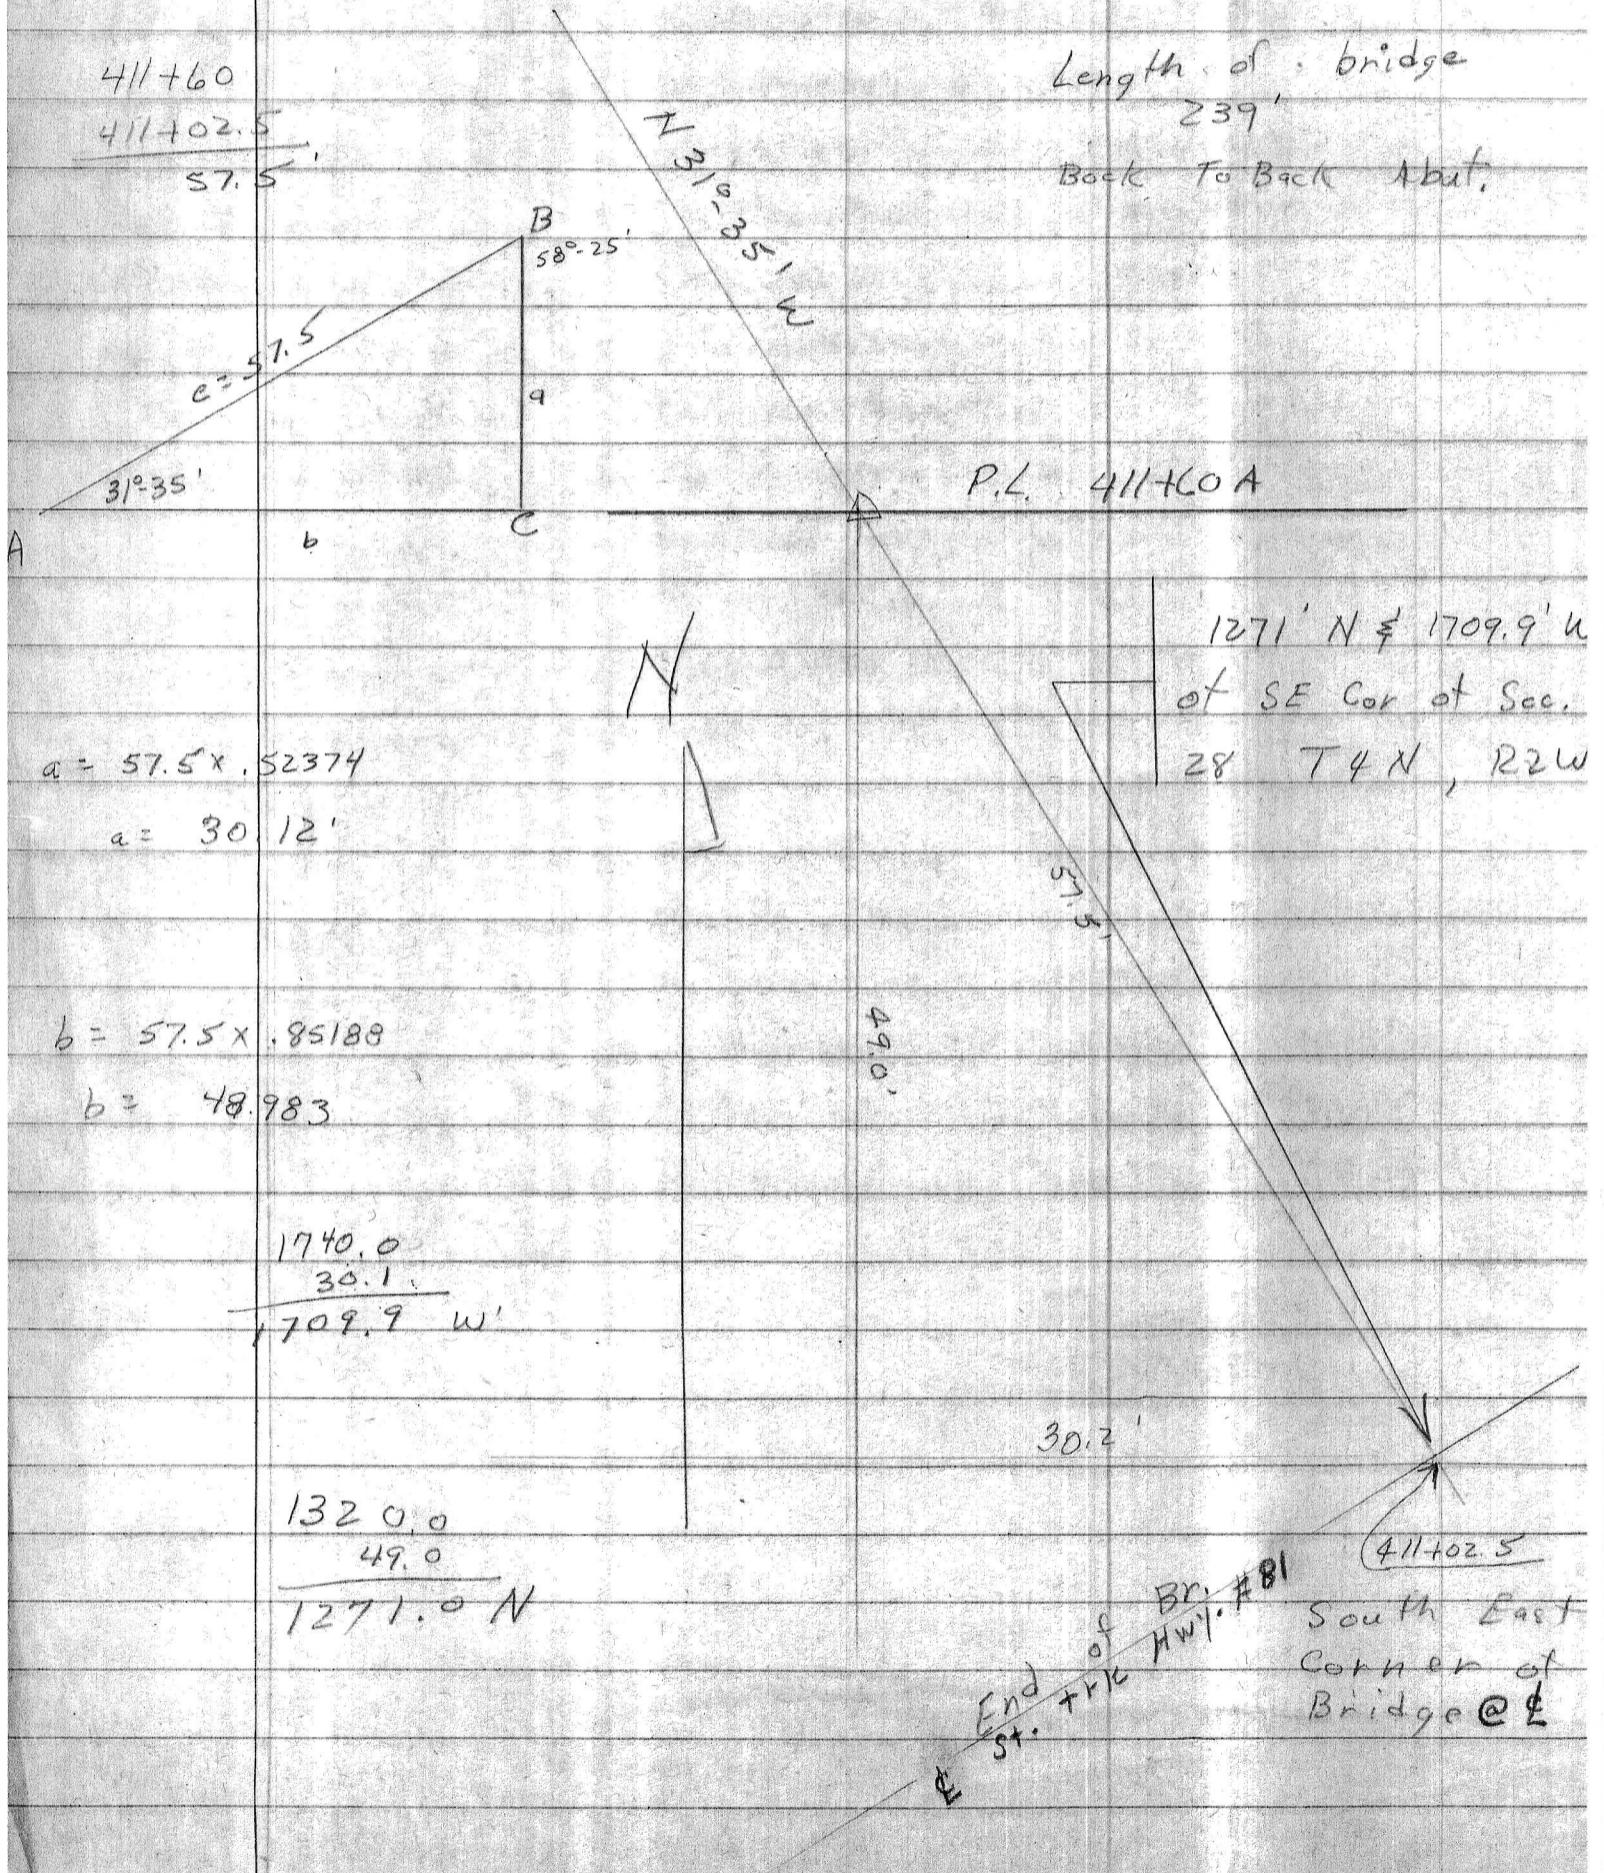 411+60
411+02.5
57.5'
Length of bridge
239'
Back To Back Abut.
N 31°-35' W
B
58°-25'
c = 57.5
a
31°-35'
A
b
C
P.L. 411+60 A
1271' N & 1709.9' W
of SE Cor of Sec.
28 T4N, R2W
N
a = 57.5 x .52374
a = 30.12'
57.5'
b = 57.5 x .85188
b = 48.983
49.0'
1740.0
30.1
1709.9 W'
30.2'
1320.0
49.0
1271.0 N
411+02.5
South East
Corner of
Bridge @ ℄
End of Br.
St. trk Hwy. #81
℄